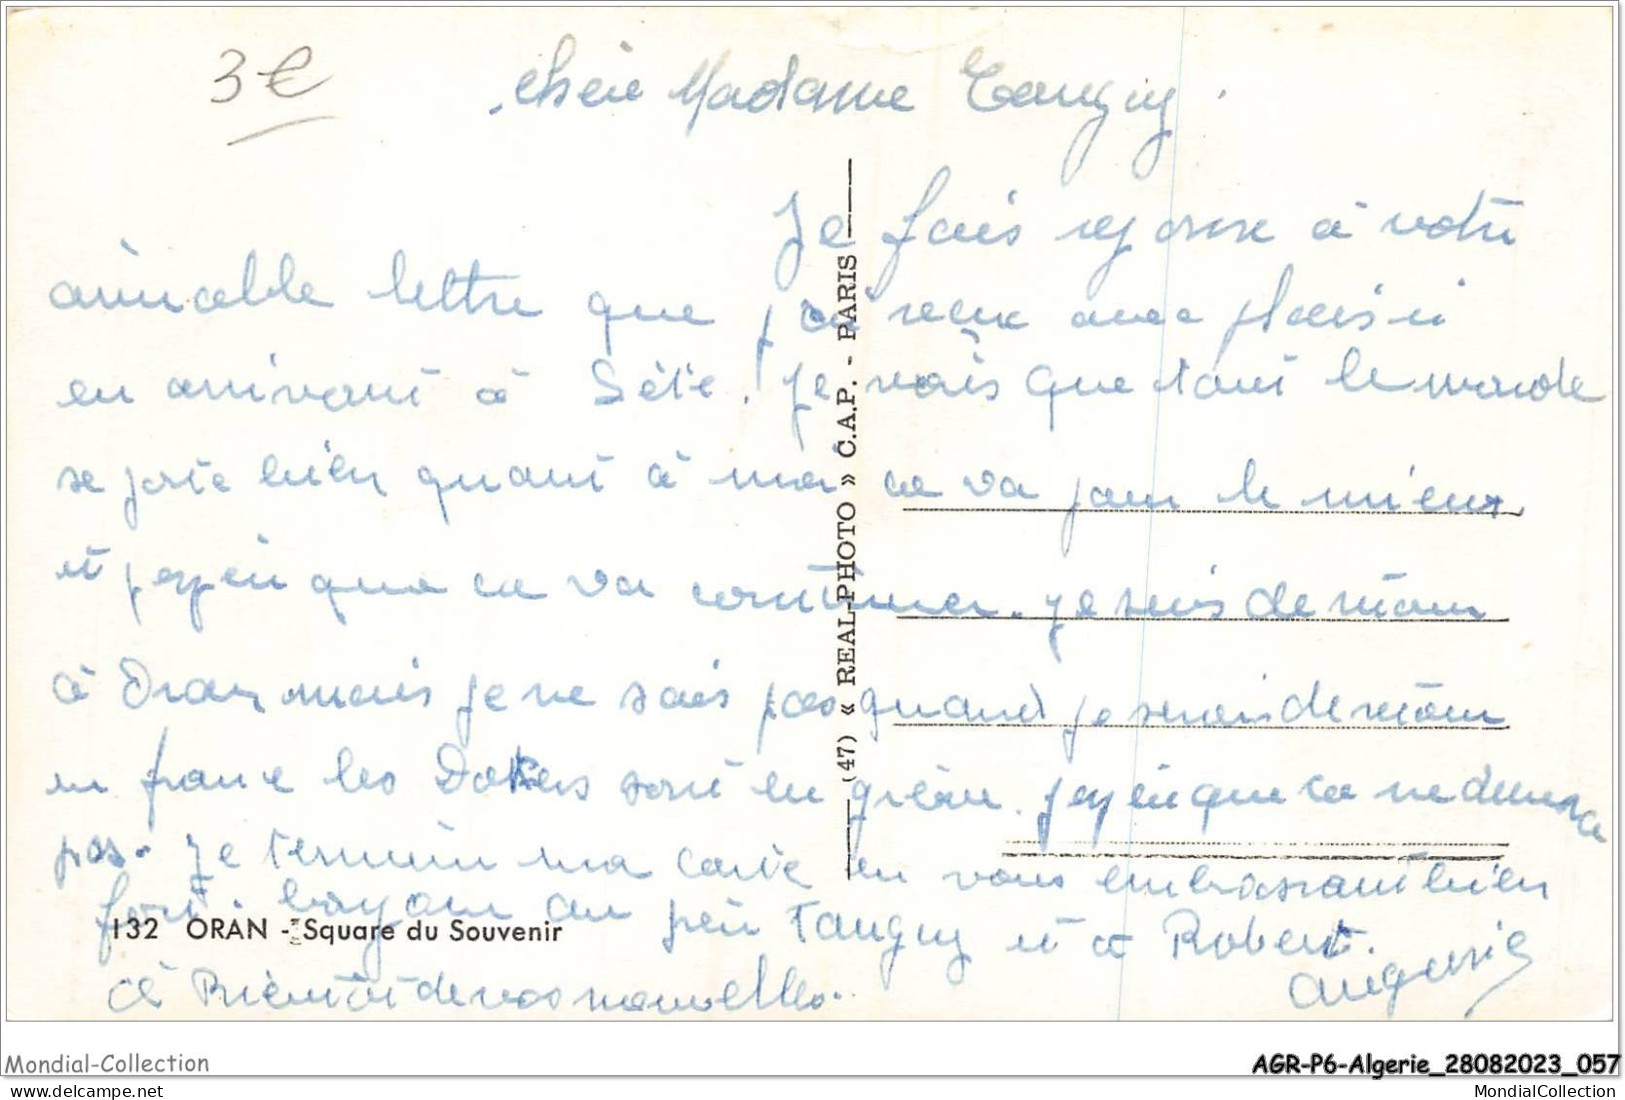 3€
chère Madame Tanguy.
Je fais reponse à votre
aimable lettre que j'ai recue avec plaisir
en arrivant à Sète. Je vois que tout le monde
se porte bien quant à moi ca va pour le mieux
et j'espèie que ca va continuer. Je suis de retour
à Oran mais je ne sais pas quand je serais de retour
en france les Dokers sont en grève. j'espèie que ca ne durera
pas. Je termine ma carte en vous embrassant bien
fort. au père Tanguy et à Robert.
à Bientôt de vos nouvelles.
Auguste
132 ORAN - Square du Souvenir
(47) « REAL-PHOTO » C.A.P. - PARIS
Mondial-Collection
AGR-P6-Algerie_28082023_057
www.delcampe.net
MondialCollection